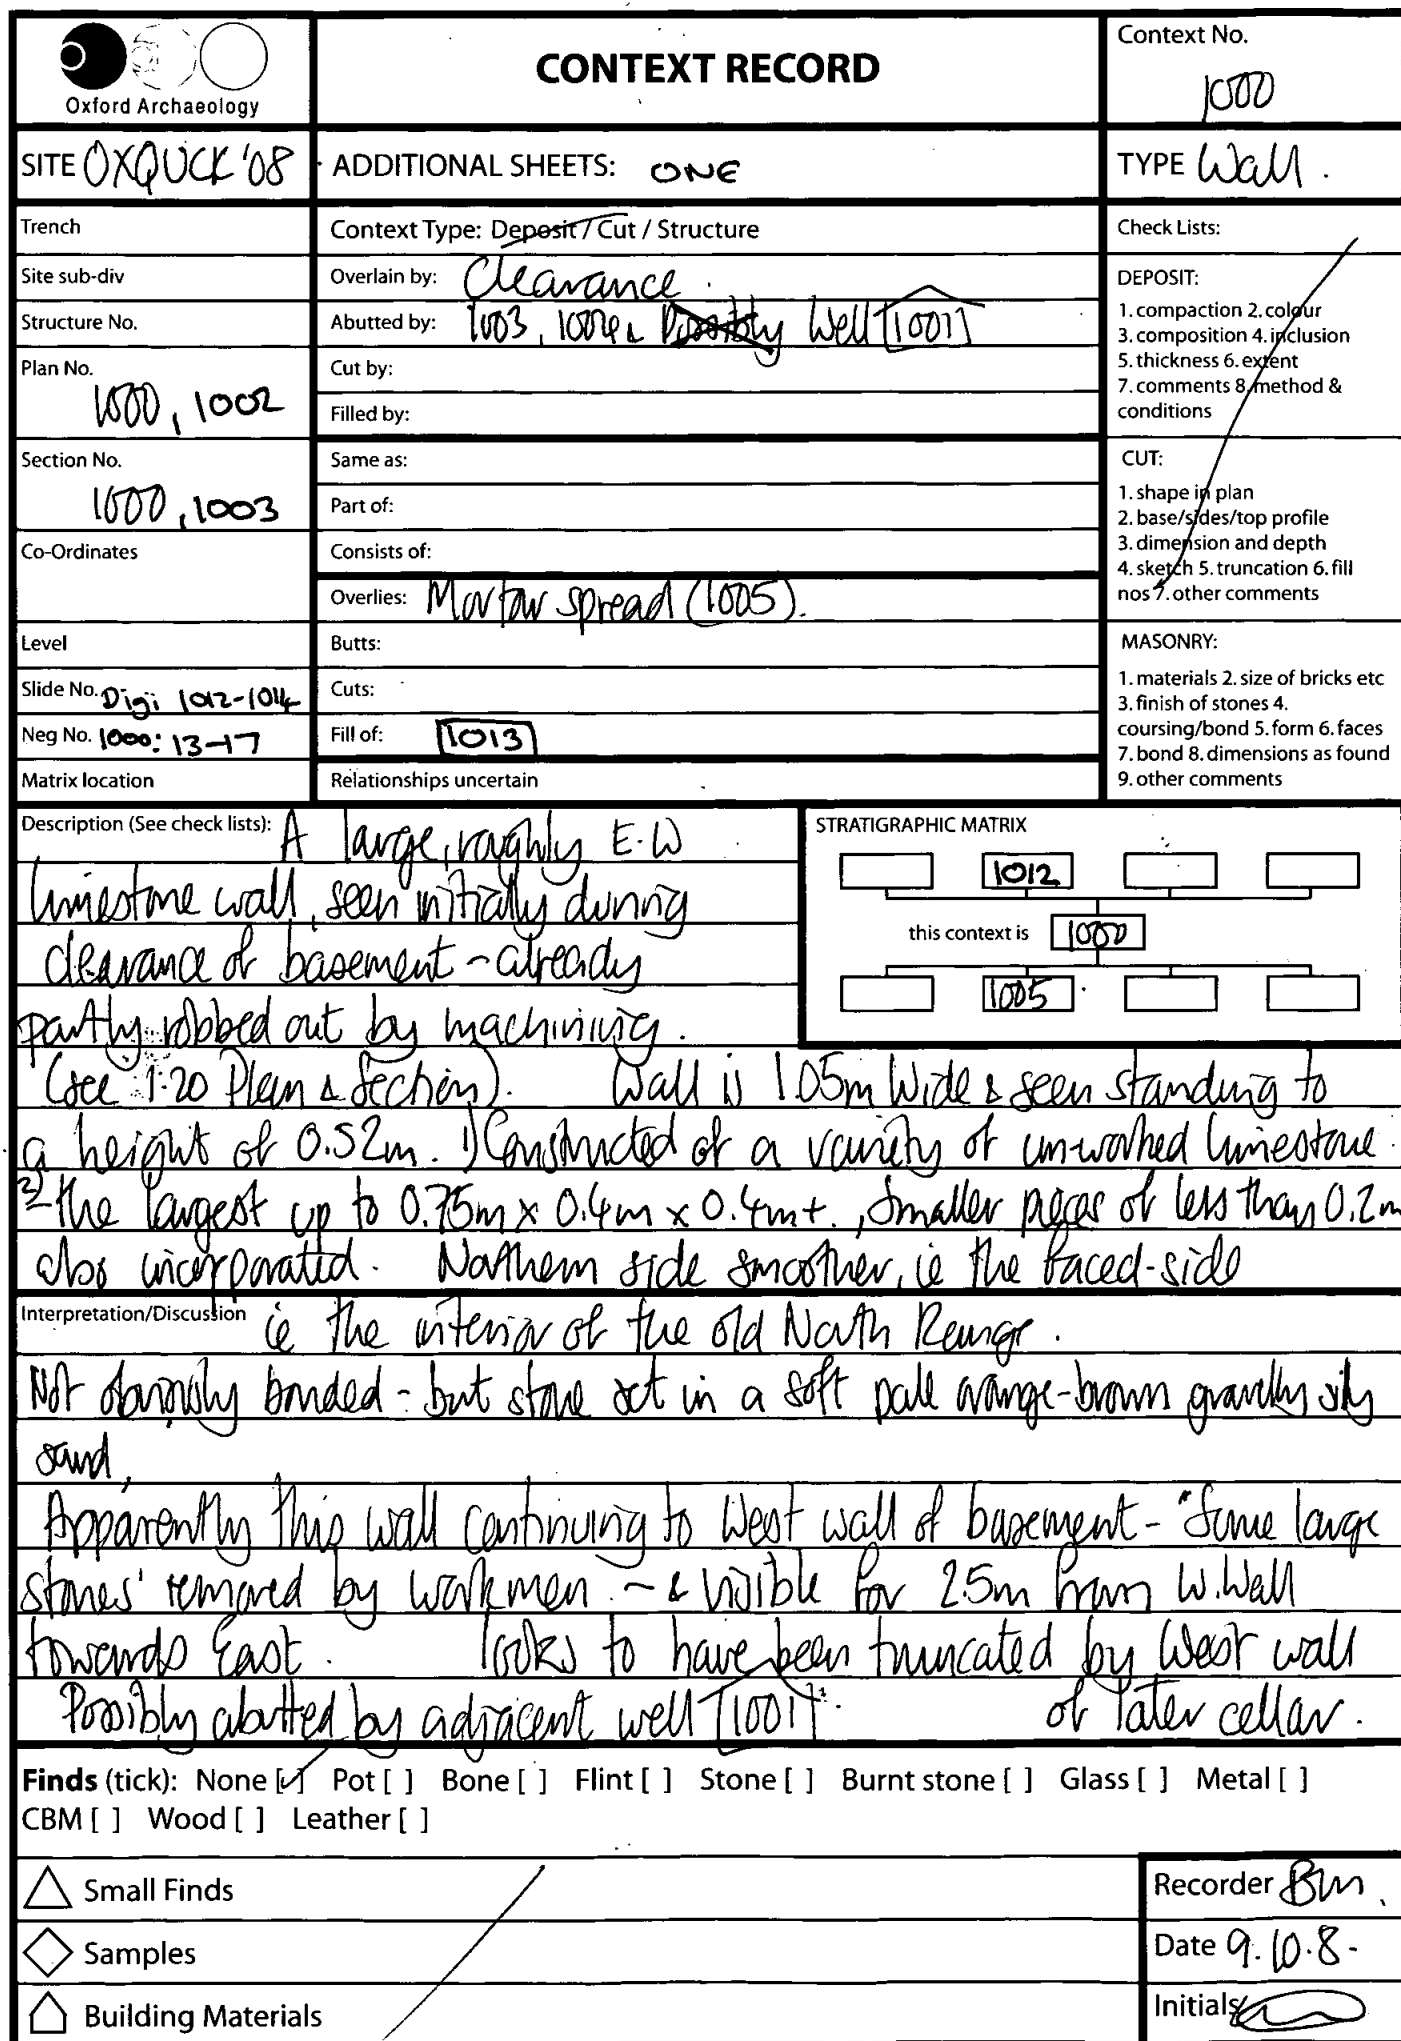 Oxford Archaeology
CONTEXT RECORD
Context No.
1000
SITE OXQUCK '08
ADDITIONAL SHEETS: ONE
TYPE Wall.
Trench
Site sub-div
Structure No.
Plan No.
1000, 1002
Section No.
1000, 1003
Co-Ordinates
Level
Slide No. Digi 1012-1014
Neg No. 1000: 13-17
Matrix location
Context Type: Deposit / Cut / Structure
Overlain by: Clearance.
Abutted by: 1003, 1004 & Possibly Well [1001]
Cut by:
Filled by:
Same as:
Part of:
Consists of:
Overlies: Mortar spread (1005).
Butts:
Cuts:
Fill of: 1013
Relationships uncertain
Check Lists:
DEPOSIT:
1. compaction 2. colour
3. composition 4. inclusion
5. thickness 6. extent
7. comments 8. method &
conditions
CUT:
1. shape in plan
2. base/sides/top profile
3. dimension and depth
4. sketch 5. truncation 6. fill
nos 7. other comments
MASONRY:
1. materials 2. size of bricks etc
3. finish of stones 4.
coursing/bond 5. form 6. faces
7. bond 8. dimensions as found
9. other comments
Description (See check lists): A large, roughly E-W
limestone wall, seen initially during
clearance of basement - already
partly robbed out by machining.
(see 1:20 Plan & Section). Wall is 1.05m Wide & seen standing to
a height of 0.52m. 1) Constructed of a variety of un-worked limestone.
2) - the largest up to 0.75m x 0.4m x 0.4m+., Smaller pieces of less than 0.2m
also incorporated. Northern side smoother, ie the faced-side
STRATIGRAPHIC MATRIX
1012
this context is 1000
1005
Interpretation/Discussion ie the interior of the old North Range.
Not obviously bonded - but stone set in a soft pale orange-brown gravelly silty
sand,
Apparently this wall continuing to West wall of basement - "Some large
stones" removed by workmen - & visible for 2.5m from W. Wall
towards East. looks to have been truncated by West wall
Possibly abutted by adjacent well [1001]. of later cellar.
Finds (tick): None [✓] Pot [ ] Bone [ ] Flint [ ] Stone [ ] Burnt stone [ ] Glass [ ] Metal [ ]
CBM [ ] Wood [ ] Leather [ ]
Small Finds
Samples
Building Materials
Recorder BM.
Date 9.10.8.
Initials